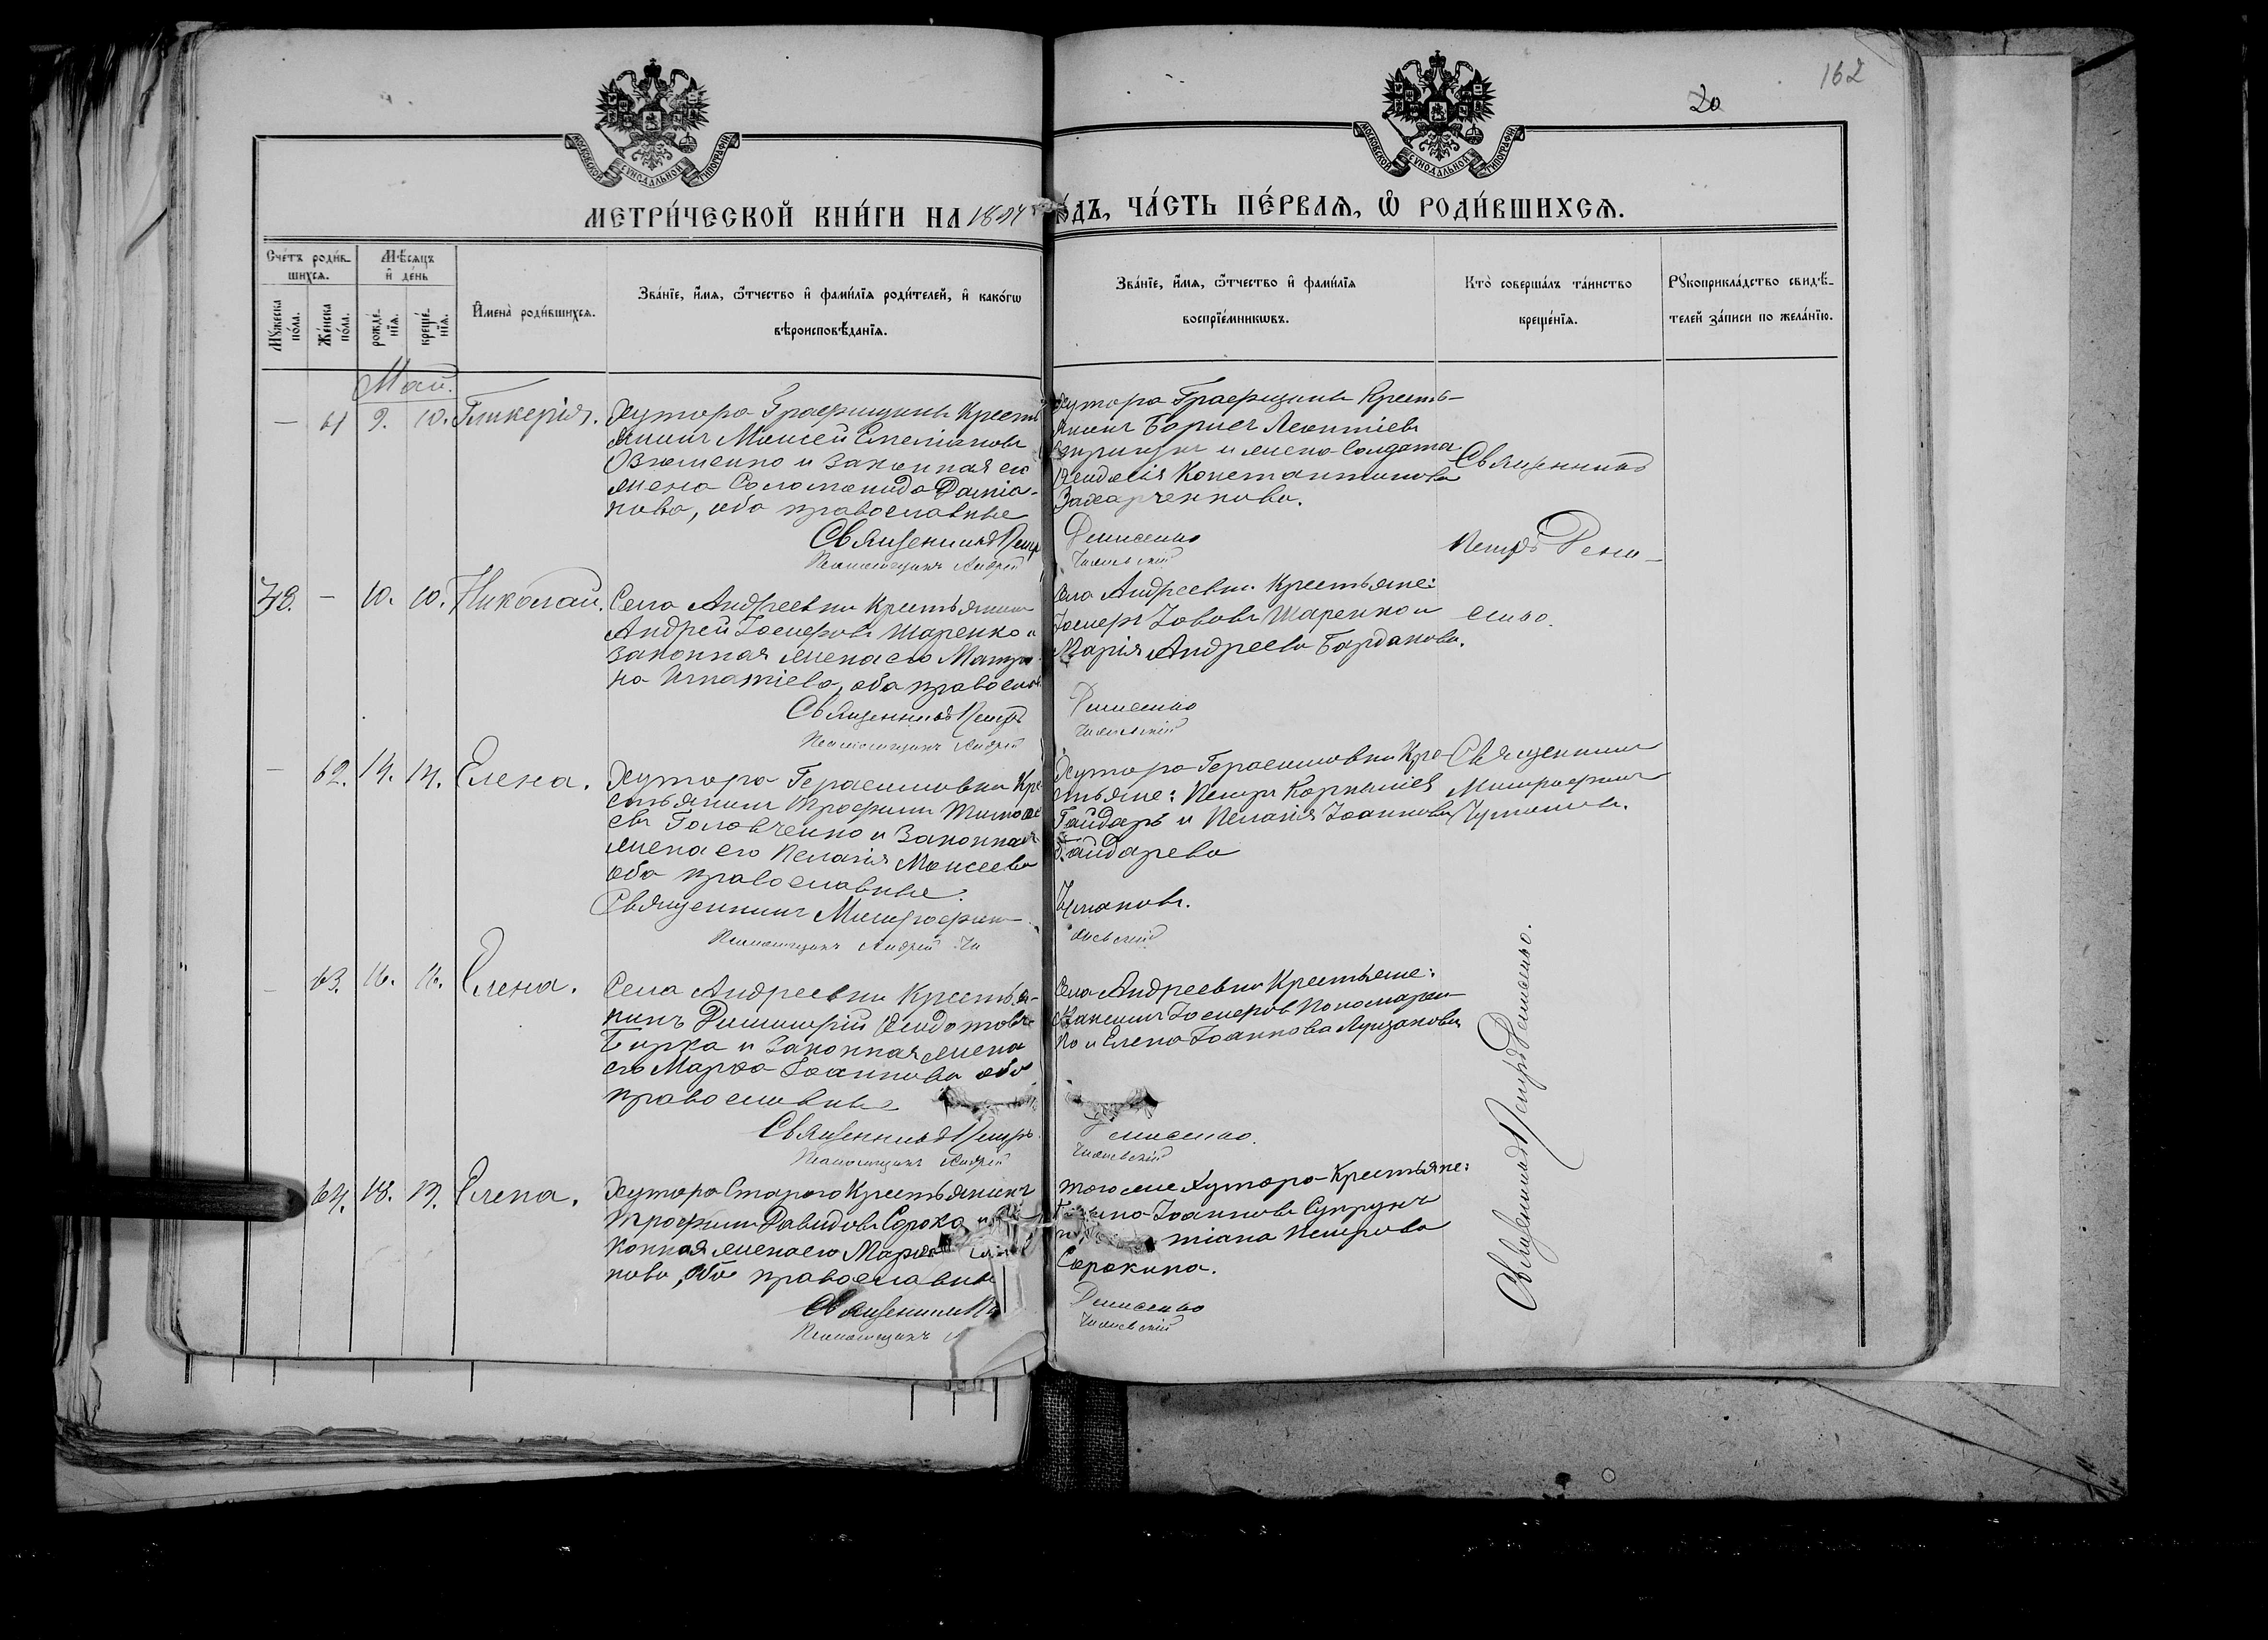 162
20
МОСКОВСКОЙ СѴНОДАЛЬНОЙ ТИПОГРАФІИ
МОСКОВСКОЙ СѴНОДАЛЬНОЙ ТИПОГРАФІИ
МЕТРИ́ЧЕСКОЙ КНИ́ГИ НА
ДЪ, ЧА́СТЬ ПЕ́РВАѦ, Ѡ҆ РОДИ́ВШИХСѦ.
Сче́тъ роди́в-
шихсѧ.
Мꙋ́жеска по́ла.
Же́нска по́ла.
Мѣ́сѧцъ
и҆ де́нь
рожде́-нїѧ.
креще́-нїѧ.
И҆мена̀ роди́вшихсѧ.
Зва́нїе, и҆́мѧ, ѻ҆́тчество и҆ фами́лїѧ роди́телей, и҆ како́гѡ
вѣроисповѣ́данїѧ.
Зва́нїе, и҆́мѧ, ѻ҆́тчество и҆ фами́лїѧ
воспрїе́мникѡвъ.
Кто̀ соверша́лъ та́инство
креще́нїѧ.
Рꙋкоприкла́дство свидѣ́-
телей за́писи по жела́нїю.
Май.
— 61 9. 10. Гликерія.
Хутора Графщины Кресть
янинъ Моисей Емеліановъ
и законная его
жена Соломонида Даміа-
нова, оба православные
Священникъ Петр
Псаломщикъ Андрей
Хутора Графщины Кресть-
янинъ Борисъ Леонтіевъ
и жена Солдата
Константинова
Захарченкова.
Денисенко
Священникъ
Петръ Дени-
сенко.
38. — 10. 10. Николай.
Села Андреевки Крестьянинъ
Андрей Іосифовъ Шаренко и
законная жена его Матро
на Игнатіева, оба православ
Священникъ Петръ
Псаломщикъ Андрей
Села Андреевки Крестьяне:
Іосифъ Іововъ Шаренко и
Марія Андреева Бардакова.
Денисенко
— 62. 14. 14. Елена.
Хутора Герасимовки Кре
стьянинъ Трофимъ Тимофе
евъ Головченко и законная
жена его Пелагія Моисеева
оба православные.
Священникъ Митрофанъ
Псаломщикъ Андрей
Хутора Герасимовки Кре
стьяне: Петръ Корнилієвъ
Гайдаръ и Пелагія Іоаннова
Гайдарева
Священникъ
Митрофанъ
— 63. 16. 16. Елена.
Села Андреевки Крестья-
нинъ Димитрій Ѳедотовъ
и законная жена
его Марѳа Іоаннова оба
православные
Священникъ Петръ
Псаломщикъ Андрей
Села Андреевки Крестьяне:
Максимъ Іосифовъ Пономарен
ко и Елена Іоаннова
Денисенко.
64. 18. 19. Елена.
Хутора Старого Крестьянинъ
Трофимъ Давидовъ Сорока и
конная жена его Марѳа
нова, оба православные
Священникъ Пе
Псаломщикъ
того же Хутора Крестьяне:
Іоанновъ Супрунъ
тіана Петрова
Сорокина.
Денисенко
Священникъ Петръ Денисенко.